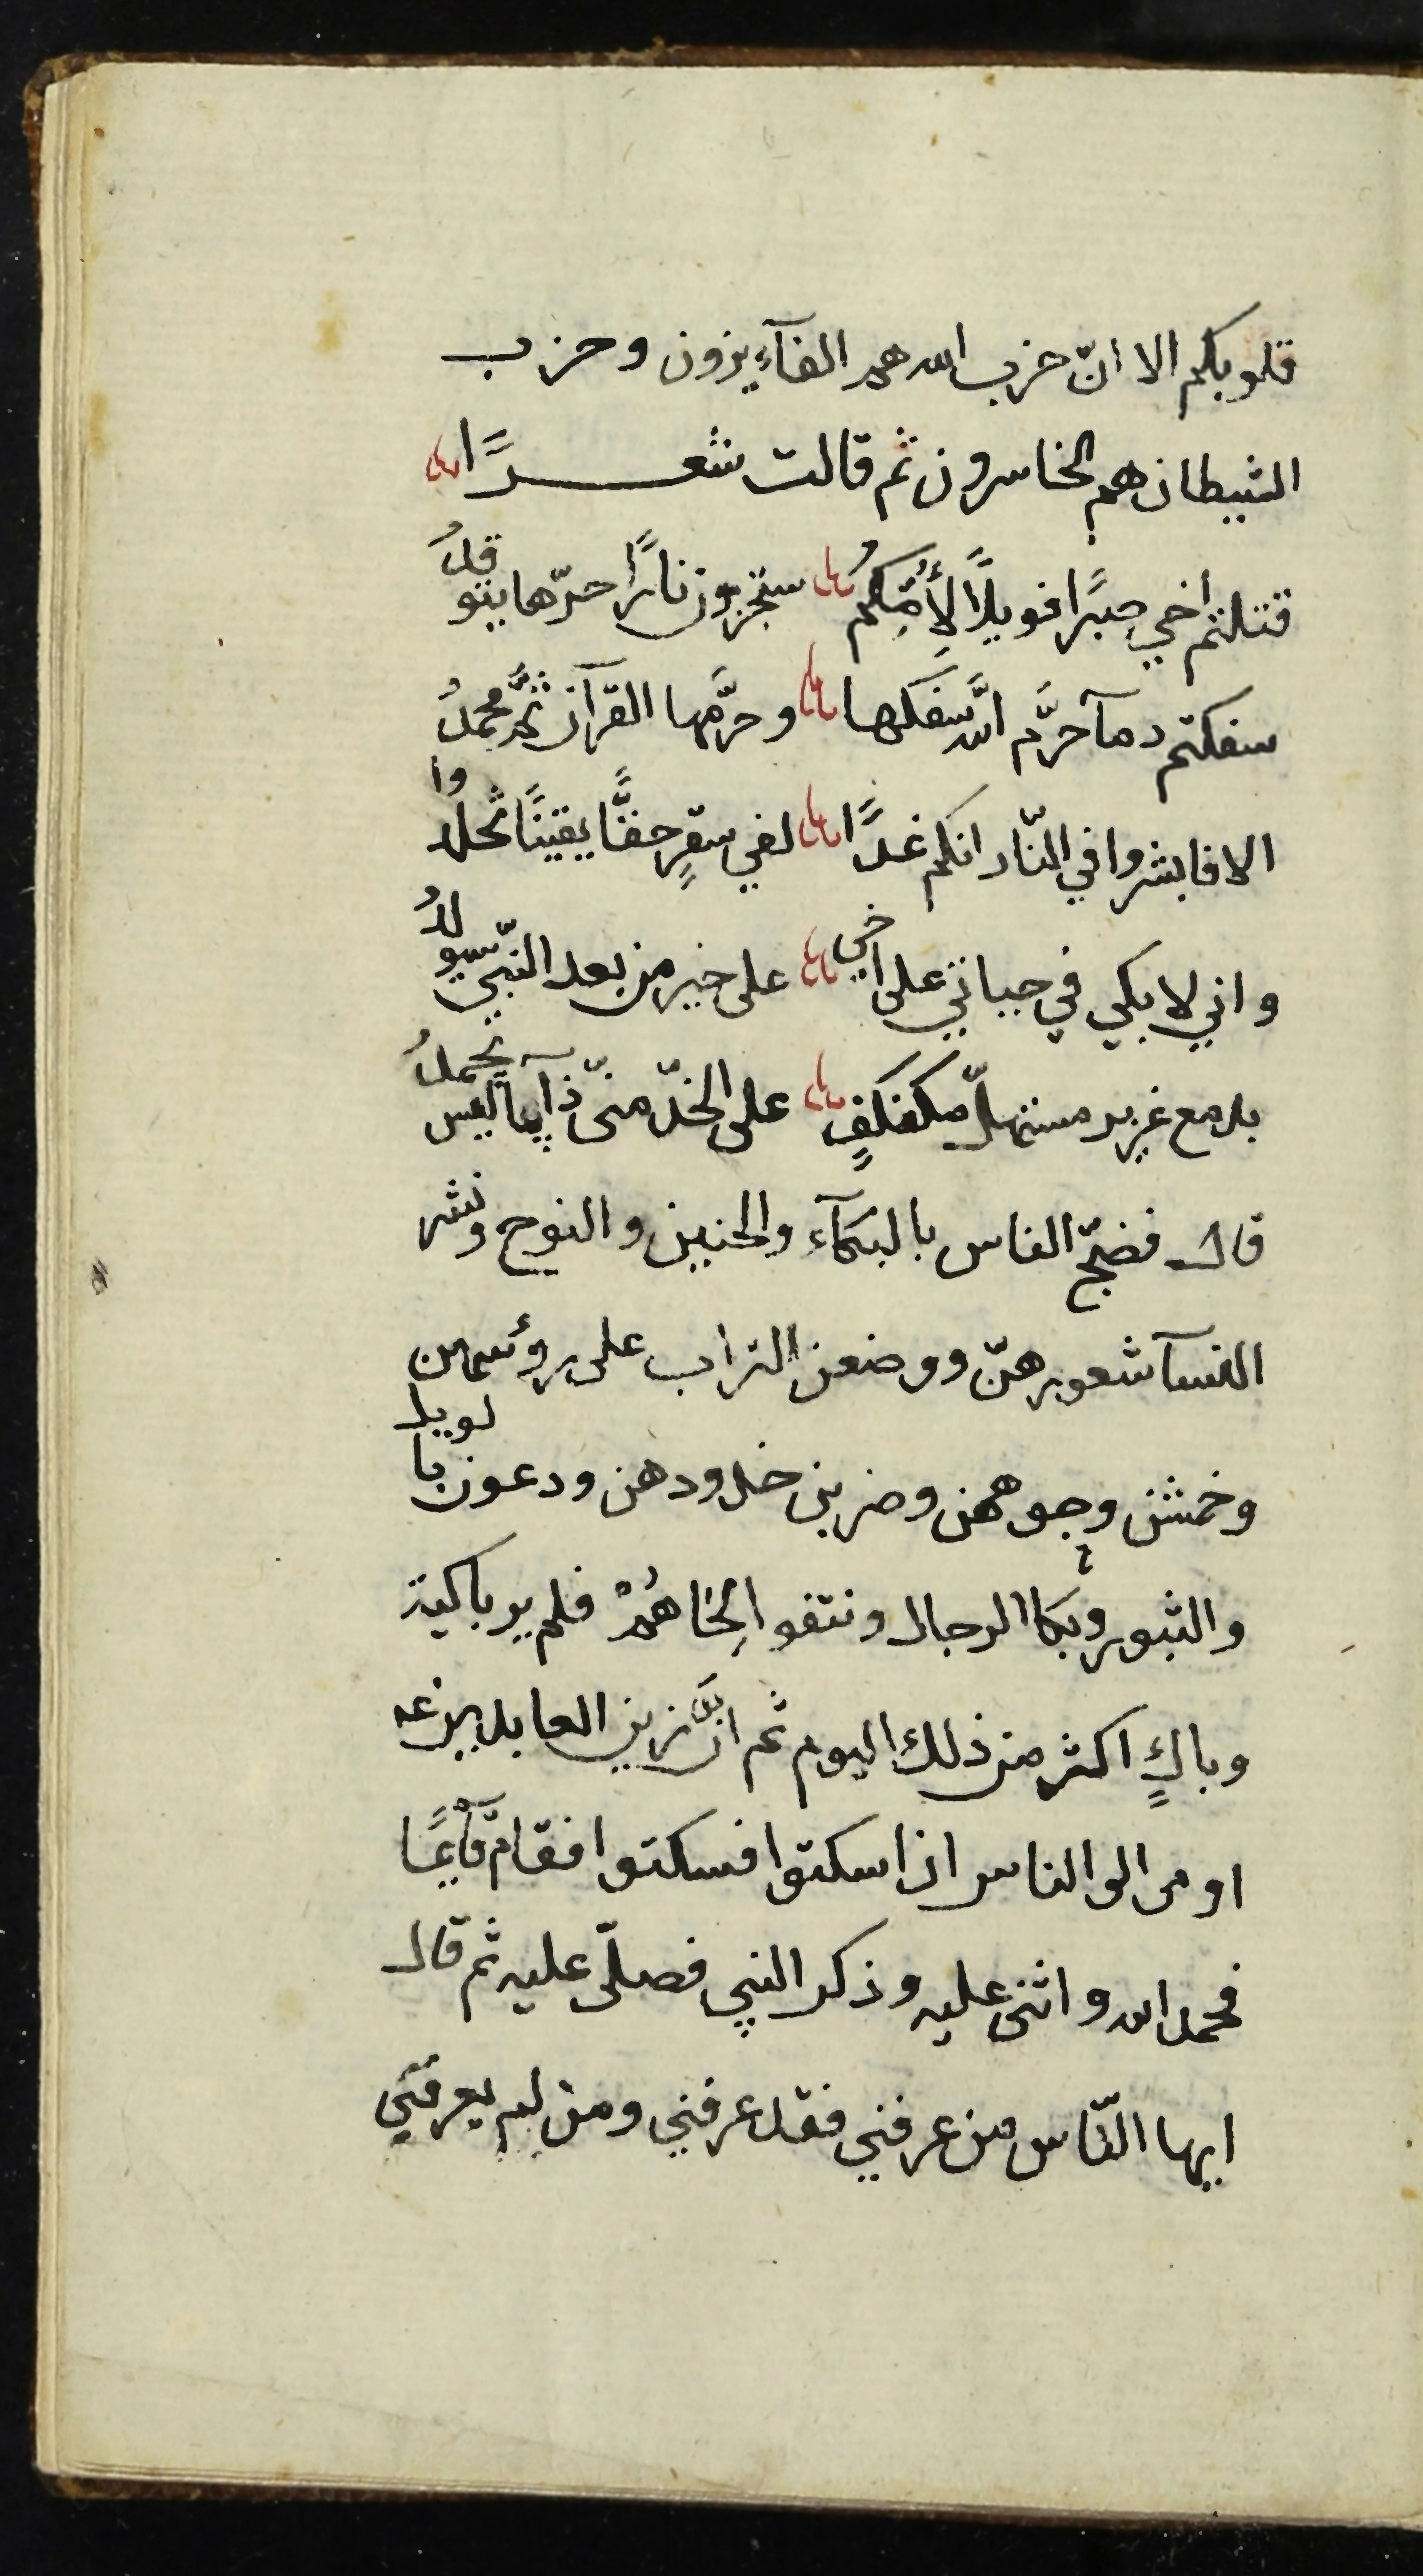 قلوبكم الا انّ حزب الله هم الفآءيزون وحزب
الشيطان هم الخاسرون ثم قالت شعـــرًا
قتلتم اخي صبرًا فويلًا لِأُمِّكُمُ ستجزون نارًا حرّها يتوقدُ
سفكتم دمآ حرَّم اللَّه سفكها وحرَّمها القرآن ثمَّ محمدُ
الا فابشروا في النّار انكم غدًا لفي سقرٍ حقًّا يقينًا تخلدوا
واني لابكي في حياتي على اخي على خير من بعد النّبيّ سيولدُ
بدمع غزير مستهلّ مكفكفٍ على الخدّ منّي ذآيمًا ليس يحمدُ
قال فضجّ الناس بالبكآء والحنين والنوح ونشر
النسآ شعورهنّ ووضعن التراب على رؤسهن
وخمشن وجوههن وضربن خدودهن ودعون بالويل
والثبور وبكا الرجال ونتفوا لِحَاهُمْ فلم ير باكية
وباكٍ اكثر من ذلك اليوم ثم انَّ زين العابدين عه
اومى الى الناس ان اسكتوا فسكتوا فقام قآيمًا
فحمد الله واثنى عليه وذكر النبي فصلّى عليه ثم قال
ايها النّاس من عرفني فقد عرفني ومن لم يعرفني